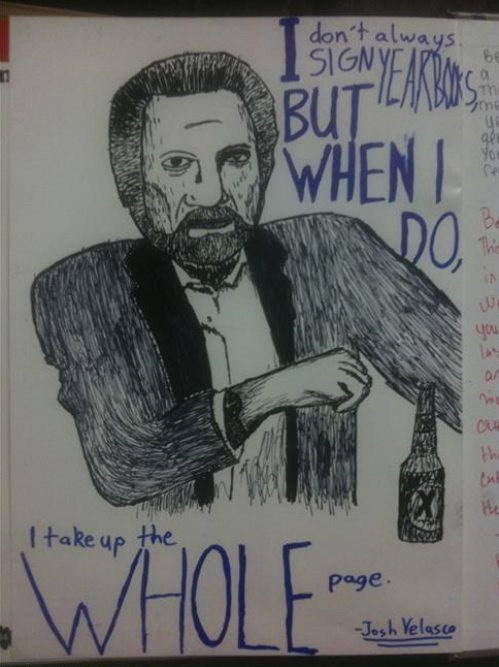 I don't always
SIGN YEARBOOKS,
BUT
WHEN I
DO,
X
I take up the
WHOLE page.
-Josh Velasco